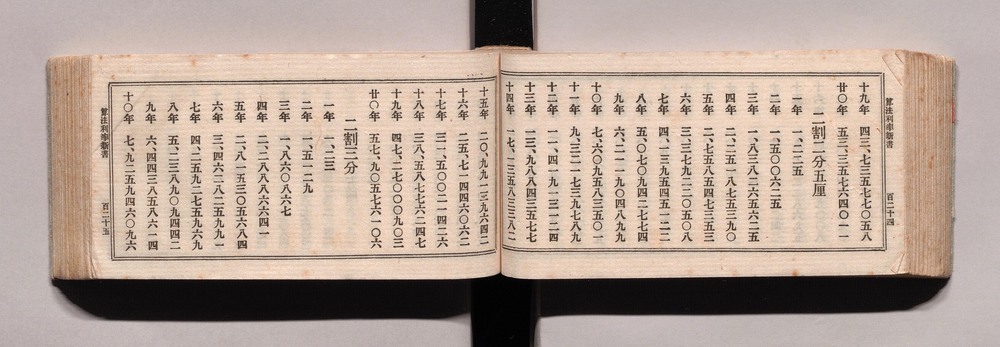 算法利率新書
百二十四
十九年 四三、七三五七七〇五八
廿〇年 五三、三五七六四〇一一
二割二分五厘
一年 一、二二五
二年 一、五〇〇六二五
三年 一、八三八二六五六二五
四年 二、二五一八七五三九〇
五年 二、七五八五四七三五三
六年 三、三七九二二〇五〇八
七年 四、一三九五四五一二二
八年 五、〇七〇九四二七七四
九年 六、二一一九〇四八九九
十〇年 七、六〇九五八三五〇一
十一年 九、三二一七三九七八九
十二年 一一、四一九一三一二四
十三年 一三、九八八四三五七七
十四年 一七、一三五八三三八二
十五年 二〇、九九一三九六四二
十六年 二五、七一四四六〇六二
十七年 三一、五〇〇二一四二六
十八年 三八、五八七七六二四七
十九年 四七、二七〇〇〇九〇三
廿〇年 五七、九〇五七六一〇六
二割三分
一年 一、二三
二年 一、五一二九
三年 一、八六〇八六七
四年 二、二八八八六六四一
五年 二、八一五三〇五六八四
六年 三、四六二八二五九九一
七年 四、二五九二七五九六九
八年 五、二三八九〇九四四二
九年 六、四四三八五八六一四
十〇年 七、九二五九四六〇九六
算法利率新書
百二十五